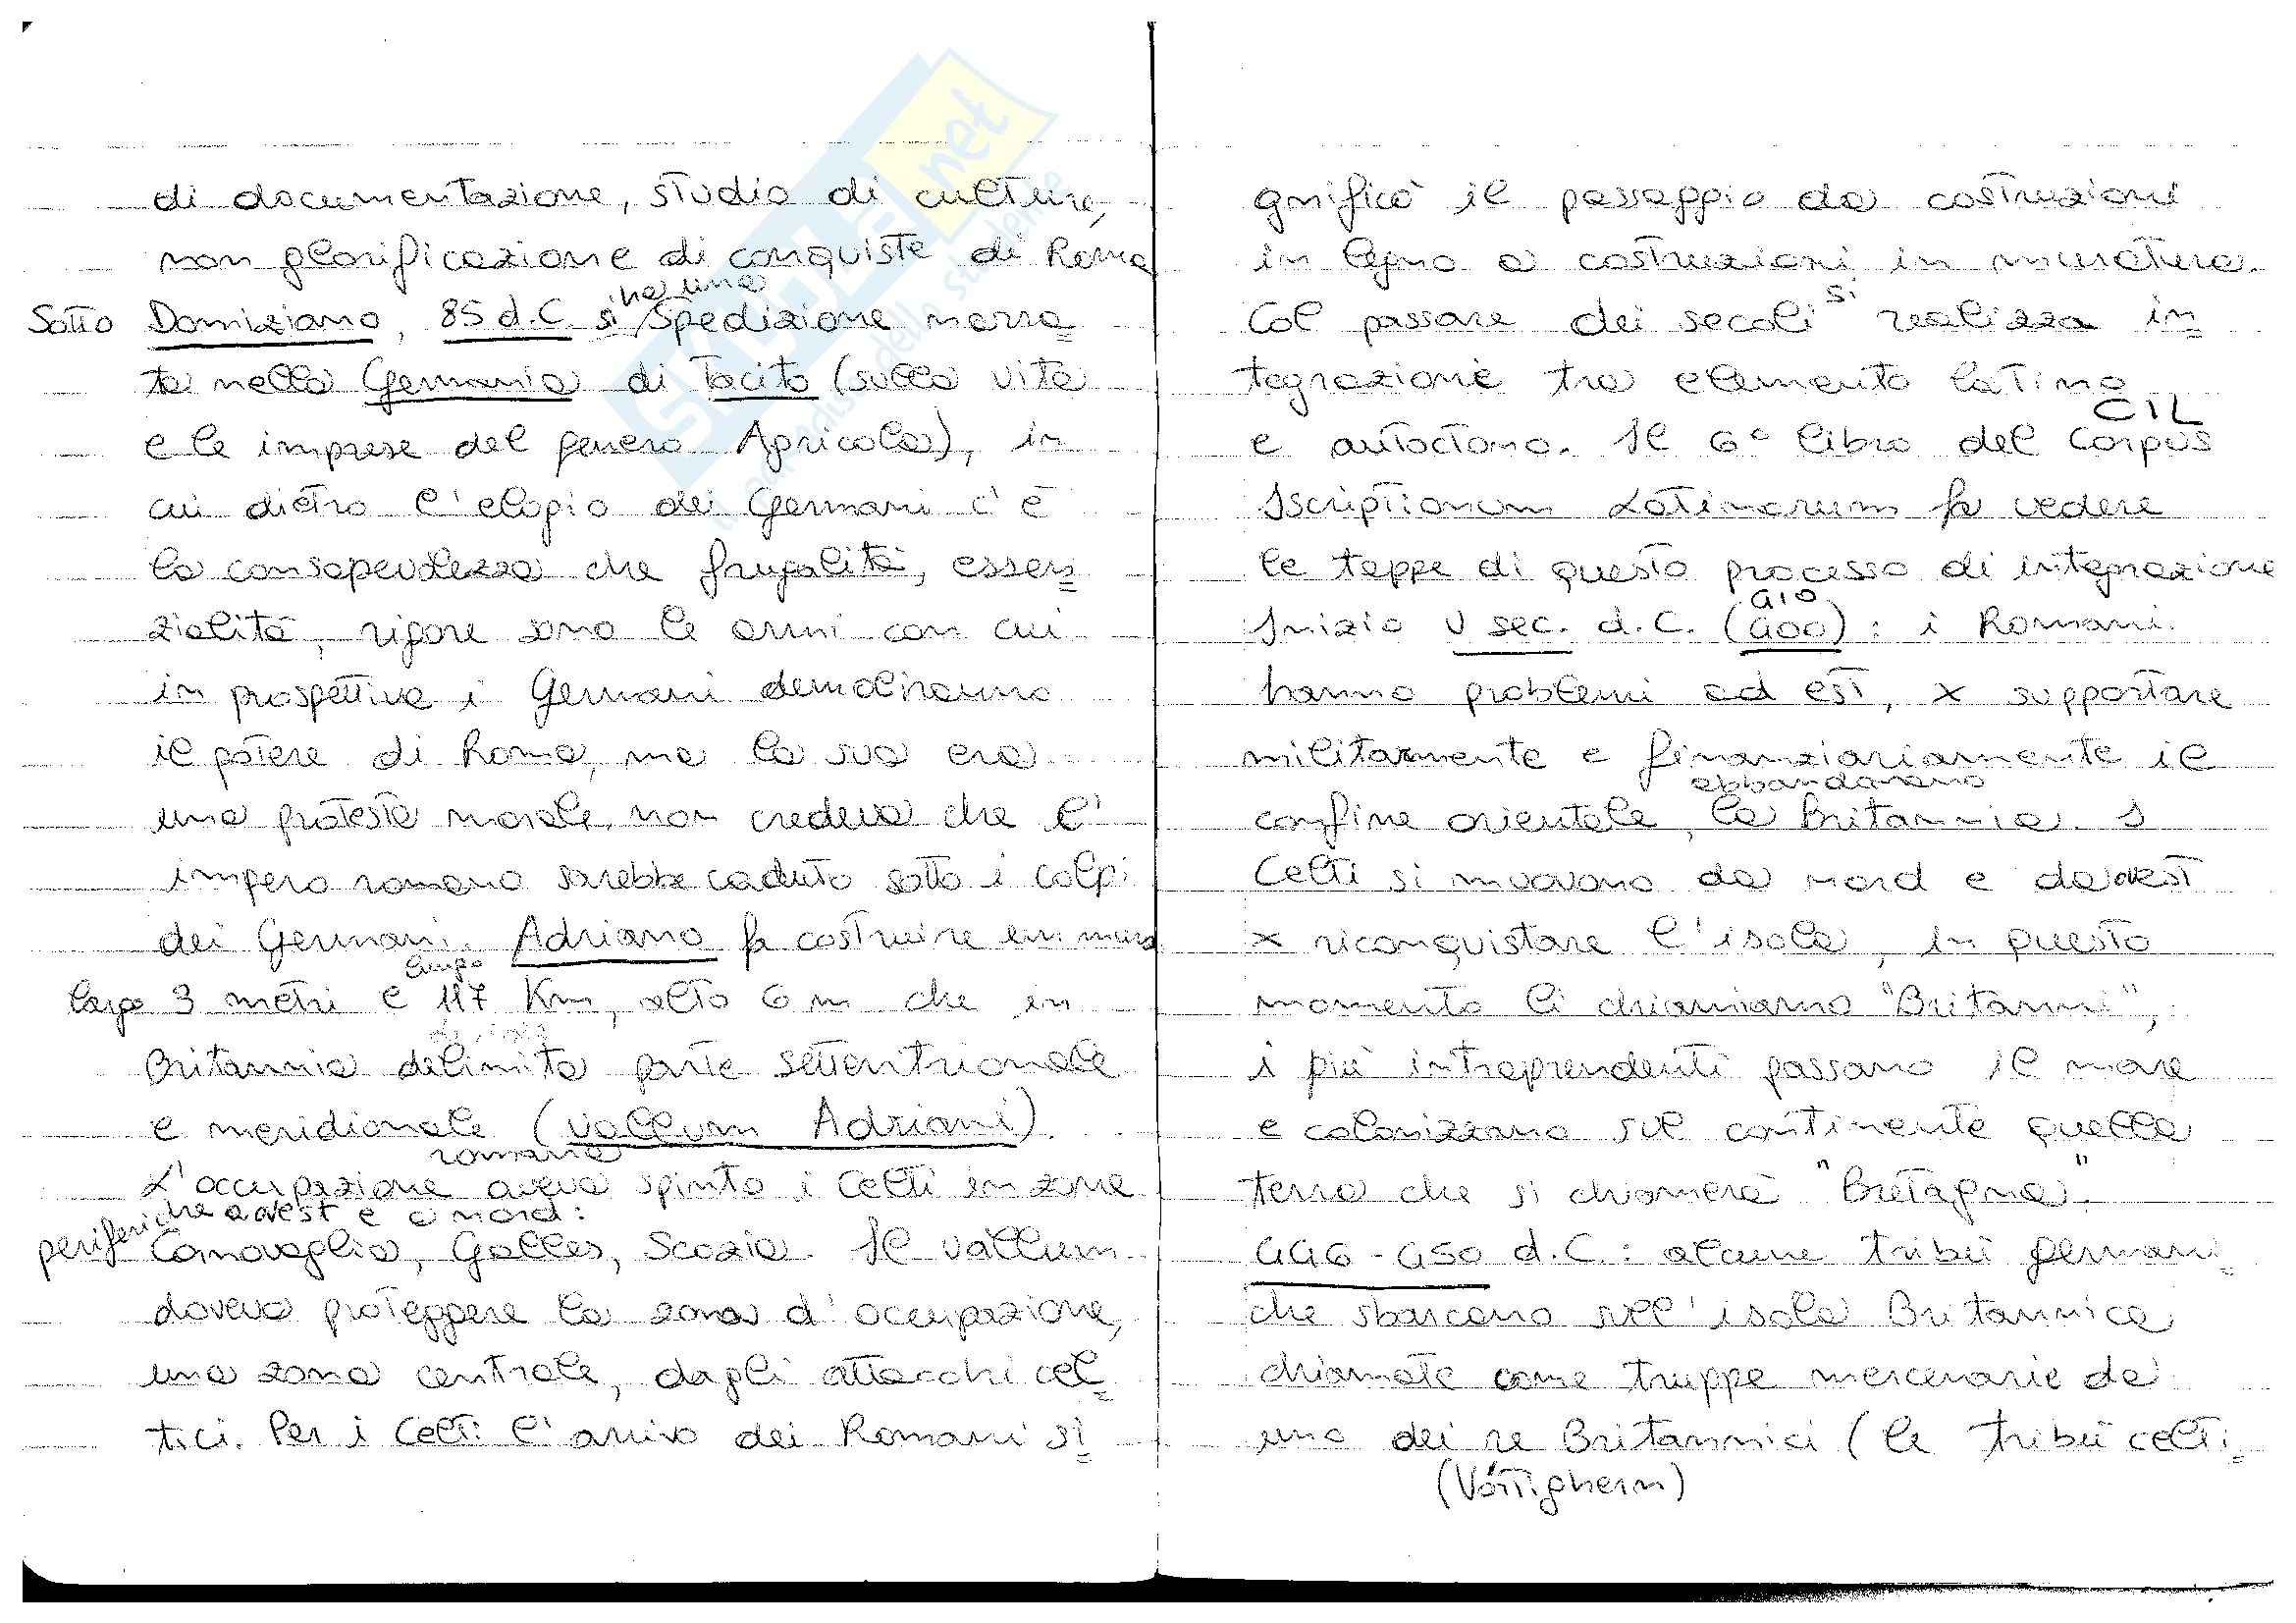 di documentazione, studio di culture,
non glorificazione di conquiste di Roma
Sotto Domiziano, 85 d.C. si ha una spedizione narra
ta nella Germania di Tacito (sulla vita
e le imprese del genero Agricola), in
cui dietro l'elogio dei Germani c'è
la consapevolezza che frugalità, essen
zialità, rigore sono le armi con cui
in prospettiva i Germani demoliranno
il potere di Roma, ma la sua era
una protesta morale, non credeva che l'
impero romano sarebbe caduto sotto i colpi
dei Germani. Adriano fa costruire un muro
largo 3 metri e lungo 117 Km, alto 6 m che in
Britannia delimita parte settentrionale
e meridionale (vallum Adriani).
L'occupazione romana aveva spinto i Celti in zone
periferiche a ovest e a nord:
Cornovaglia, Galles, Scozia. Il vallum
doveva proteggere la zona d'occupazione,
una zona centrale, dagli attacchi cel
tici. Per i Celti l'arrivo dei Romani si
gnificò il passaggio da costruzioni
in legno a costruzioni in muratura.
Col passare dei secoli si realizza in
tegrazione tra elemento latino
e autoctono. Il 6° libro del Corpus CIL
Iscriptionum Latinarum fa vedere
le tappe di questo processo di integrazione
Inizio V sec. d.C. (400) 410: i Romani
hanno problemi ad est, x supportare
militarmente e finanziariamente il
confine orientale, abbandonano la Britannia. I
Celti si muovono da nord e da ovest
x riconquistare l'isola, in questo
momento li chiamiamo "Britanni",
i più intraprendenti passano il mare
e colonizzano sul continente quella
terra che si chiamerà "Bretagna".
446-450 d.C.: alcune tribù germani
che sbarcano sull'isola Britannica
chiamate come truppe mercenarie da
uno dei re Britannici (le tribù celti
(Vórtighern)